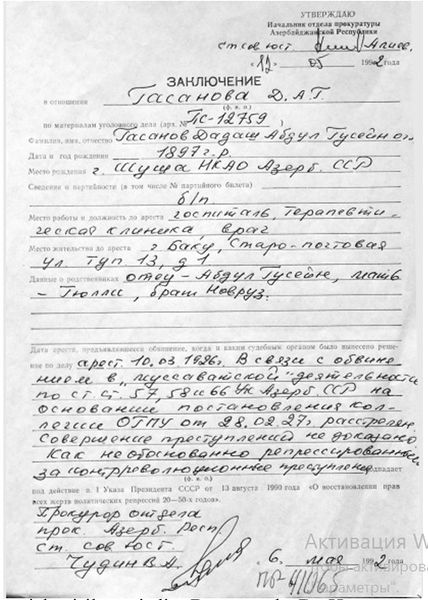 УТВЕРЖДАЮ
Начальник отдела прокуратуры
Азербайджанской Республики
ст. сов. юст. Алиев
« 12 » 05 1992 года
ЗАКЛЮЧЕНИЕ
в отношении Гасанова Д.А.Г.
(ф. и. о.)
по материалам уголовного дела (арх. № ПС-12759 )
Фамилия, имя, отчество Гасанов Дадаш Абдул Гусейн ог.
Дата и год рождения 1897 г.р.
Место рождения г. Шуша НКАО Азерб. ССР
Сведения о партийности (в том числе № партийного билета)
б/п.
Место работы и должность до ареста госпиталь, терапевти-
ческая клиника, врач
Место жительства до ареста г. Баку, Старо-почтовая
ул. Туп 13, д 1
Данные о родственниках отец - Абдул Гусейн, мать
- Гюлли, брат Новруз.
Дата ареста, предъявлявшееся обвинение, когда и каким судебным органом было вынесено реше-
ние по делу арест 10.03.1926, В связи с обвине
нием в „муссаватской" деятельности
по ст.ст. 57, 58 и 66 УК Азерб. ССР на
основании постановления кол-
легии ОГПУ от 28.02.27г. расстрелян.
Совершение преступлений не доказано
Как необоснованно репрессированный
за контрреволюционные преступления подпадает
(ф. и. о.)
под действие п. 1 Указа Президента СССР от 13 августа 1990 года «О восстановлении прав
всех жертв политических репрессий 20—50-х годов».
Прокурор отдела
прок. Азерб. Респ.
ст. сов. юст.
Чудин В.А.
6. мая 1992 года
Активация W
активировать
параметры".